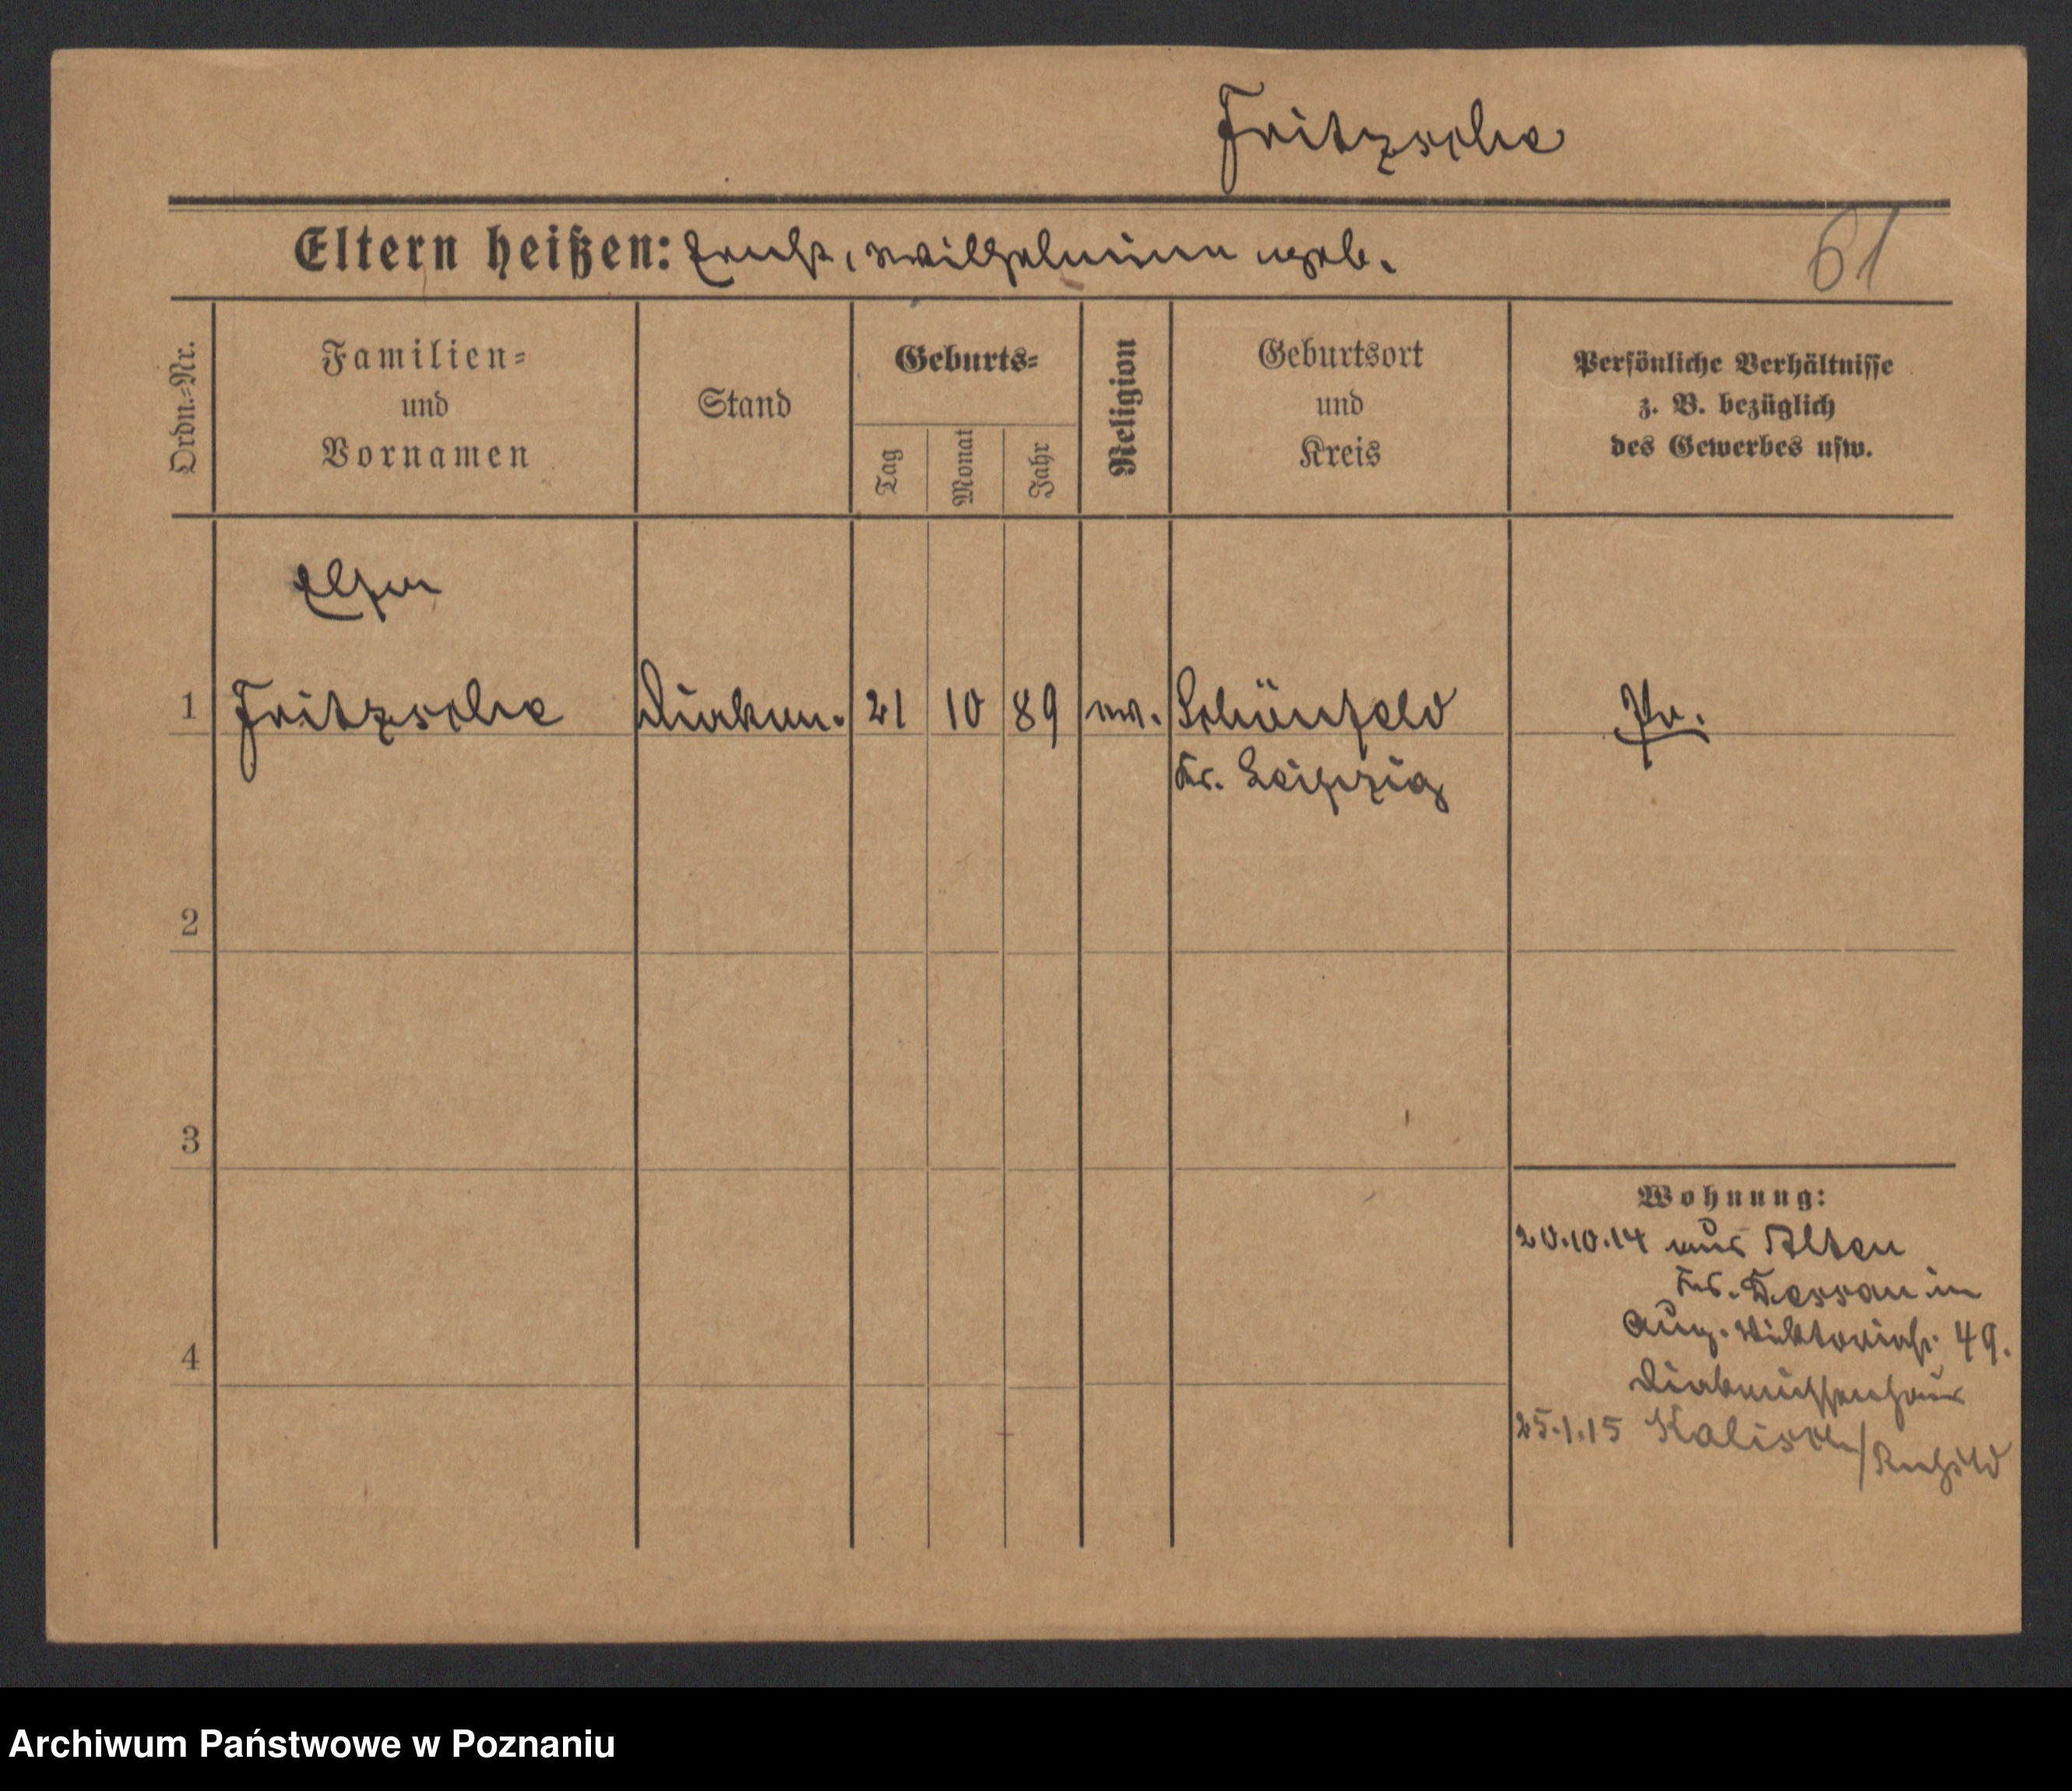 Fritzsche
Eltern heißen: Ernst, Wilhelmine geb.
61
Ordn.=Nr.
Familien=
und
Vornamen
Stand
Geburts=
Tag
Monat
Jahr
Religion
Geburtsort
und
Kreis
Persönliche Verhältnisse
z. B. bezüglich
des Gewerbes usw.
Elsa
1 Fritzsche Diakon. 21 10 89 ev. Schönfeld Pr.
Kr. Leipzig
2
3
4
Wohnung:
20.10.14 aus Alten
Kr. Dessau in
Aug. Viktoriastr. 49.
Diakonissenhaus
25.1.15 Kalisch/Rußld
Archiwum Państwowe w Poznaniu